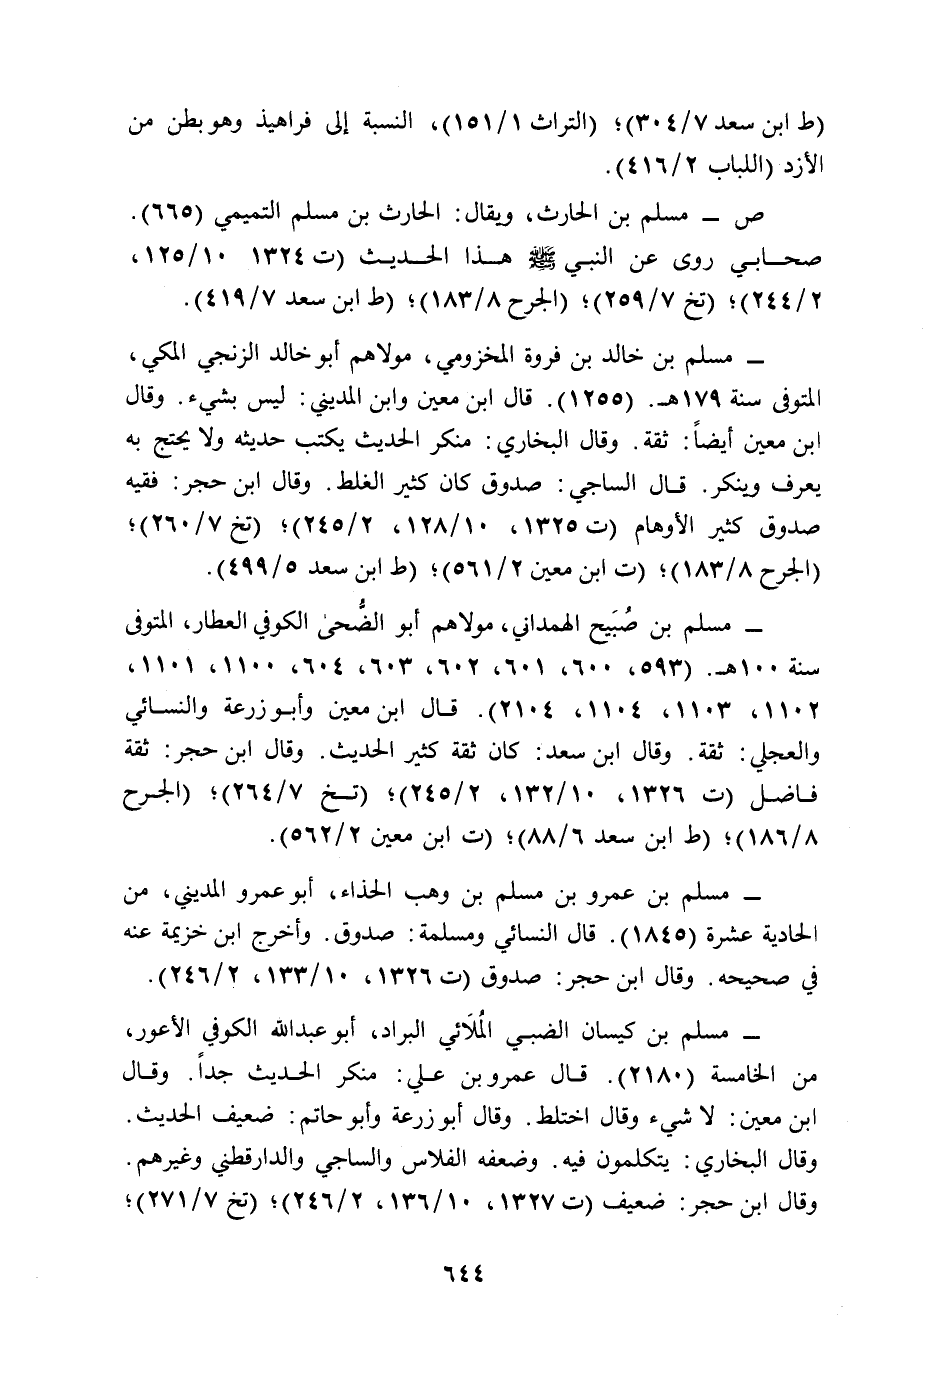 (ط ابن سعد ٣٠٤/٧)؛ (التراث ١٥١/١)، النسبة إلى فراهيذ وهو بطن من
الأزد (اللباب ٤١٦/٢).
ص – مسلم بن الحارث، ويقال: الحارث بن مسلم التميمي (٦٦٥).
صحابي روى عن النبي ﷺ هذا الحديث (ت ١٣٢٤ ١٢٥/١٠،
٢٤٤/٢)؛ (تخ ٢٥٩/٧)؛ (الجرح ١٨٣/٨)؛ (ط ابن سعد ٤١٩/٧).
– مسلم بن خالد بن فروة المخزومي، مولاهم أبو خالد الزنجي المكي،
المتوفى سنة ١٧٩هـ. (١٢٥٥). قال ابن معين وابن المديني: ليس بشيء. وقال
ابن معين أيضاً: ثقة. وقال البخاري: منكر الحديث يكتب حديثه ولا يحتج به
يعرف وينكر. قال الساجي: صدوق كان كثير الغلط. وقال ابن حجر: فقيه
صدوق كثير الأوهام (ت ١٣٢٥، ١٢٨/١٠، ٢٤٥/٢)؛ (تخ ٢٦٠/٧)؛
(الجرح ١٨٣/٨)؛ (ت ابن معين ٥٦١/٢)؛ (ط ابن سعد ٤٩٩/٥).
– مسلم بن صُبَيح الهمداني، مولاهم أبو الضُّحىٰ الكوفي العطار، المتوفى
سنة ١٠٠هـ. (٥٩٣، ٦٠٠، ٦٠١، ٦٠٢، ٦٠٣، ٦٠٤، ١١٠٠، ١١٠١،
١١٠٢، ١١٠٣، ١١٠٤، ٢١٠٤). قال ابن معين وأبو زرعة والنسائي
والعجلي: ثقة. وقال ابن سعد: كان ثقة كثير الحديث. وقال ابن حجر: ثقة
فاضل (ت ١٣٢٦، ١٣٢/١٠، ٢٤٥/٢)؛ (تخ ٢٦٤/٧)؛ (الجرح
١٨٦/٨)؛ (ط ابن سعد ٨٨/٦)؛ (ت ابن معين ٥٦٢/٢).
– مسلم بن عمرو بن مسلم بن وهب الحذاء، أبو عمرو المديني، من
الحادية عشرة (١٨٤٥). قال النسائي ومسلمة: صدوق. وأخرج ابن خزيمة عنه
في صحيحه. وقال ابن حجر: صدوق (ت ١٣٢٦، ١٣٣/١٠، ٢٤٦/٢).
– مسلم بن كيسان الضبي المُلَائي البراد، أبو عبدالله الكوفي الأعور،
من الخامسة (٢١٨٠). قال عمرو بن علي: منكر الحديث جداً. وقال
ابن معين: لا شيء وقال اختلط. وقال أبو زرعة وأبو حاتم: ضعيف الحديث.
وقال البخاري: يتكلمون فيه. وضعفه الفلاس والساجي والدارقطني وغيرهم.
وقال ابن حجر: ضعيف (ت ١٣٢٧، ١٣٦/١٠، ٢٤٦/٢)؛ (تخ ٢٧١/٧)؛
٦٤٤